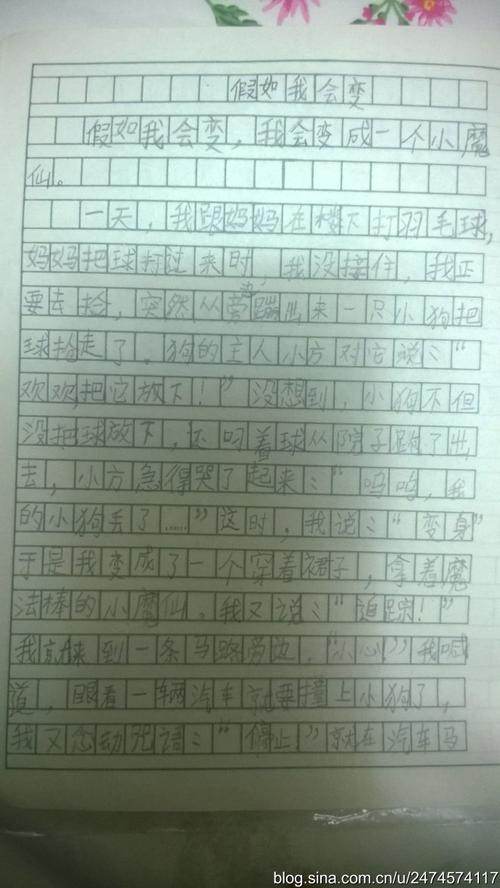 假如我会变
假如我会变，我会变成一个小魔
仙。
一天，我跟妈妈在楼下打羽毛球，
妈妈把球打过来时，我没接住，我正
要去捡，突然从旁边蹦出来一只小狗把
球抢走了。狗的主人小方对它说：“
欢欢，把它放下！”没想到，小狗不但
没把球放下，还叼着球从院子跑了出
去，小方急得哭了起来：“呜呜，我
的小狗丢了……”这时，我说：“变身”
于是我变成了一个穿着裙子，拿着魔
法棒的小魔仙。我又说：“追踪！”
我就来到一条马路旁边，“小心”我喊
道，眼看一辆汽车就要撞上小狗了，
我又念动咒语：“停止”就在汽车马
blog.sina.com.cn/u/2474574117